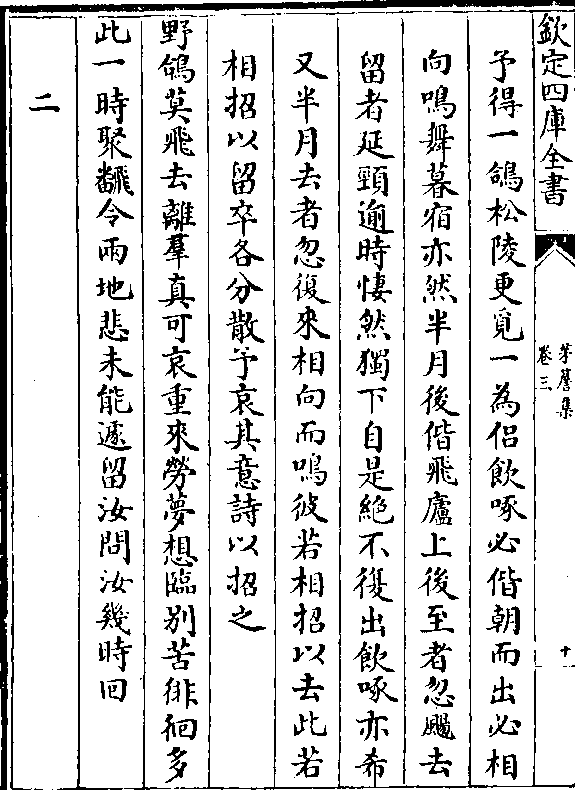 欽定四庫全書
茅簷集
卷三
十
予得一鴿松陵更覓一為侶飲啄必偕朝而出必相
向鳴舞暮宿亦然半月後偕飛廬上後至者忽颺去
留者延頸逾時悽然獨下自是絶不復出飲啄亦希
又半月去者忽復來相向而鳴彼若相招以去此若
相招以留卒各分散予哀其意詩以招之
野鴿莫飛去離羣真可哀重來勞夢想臨别苦徘徊多
此一時聚飜令兩地悲未能遽留汝問汝幾時回
二